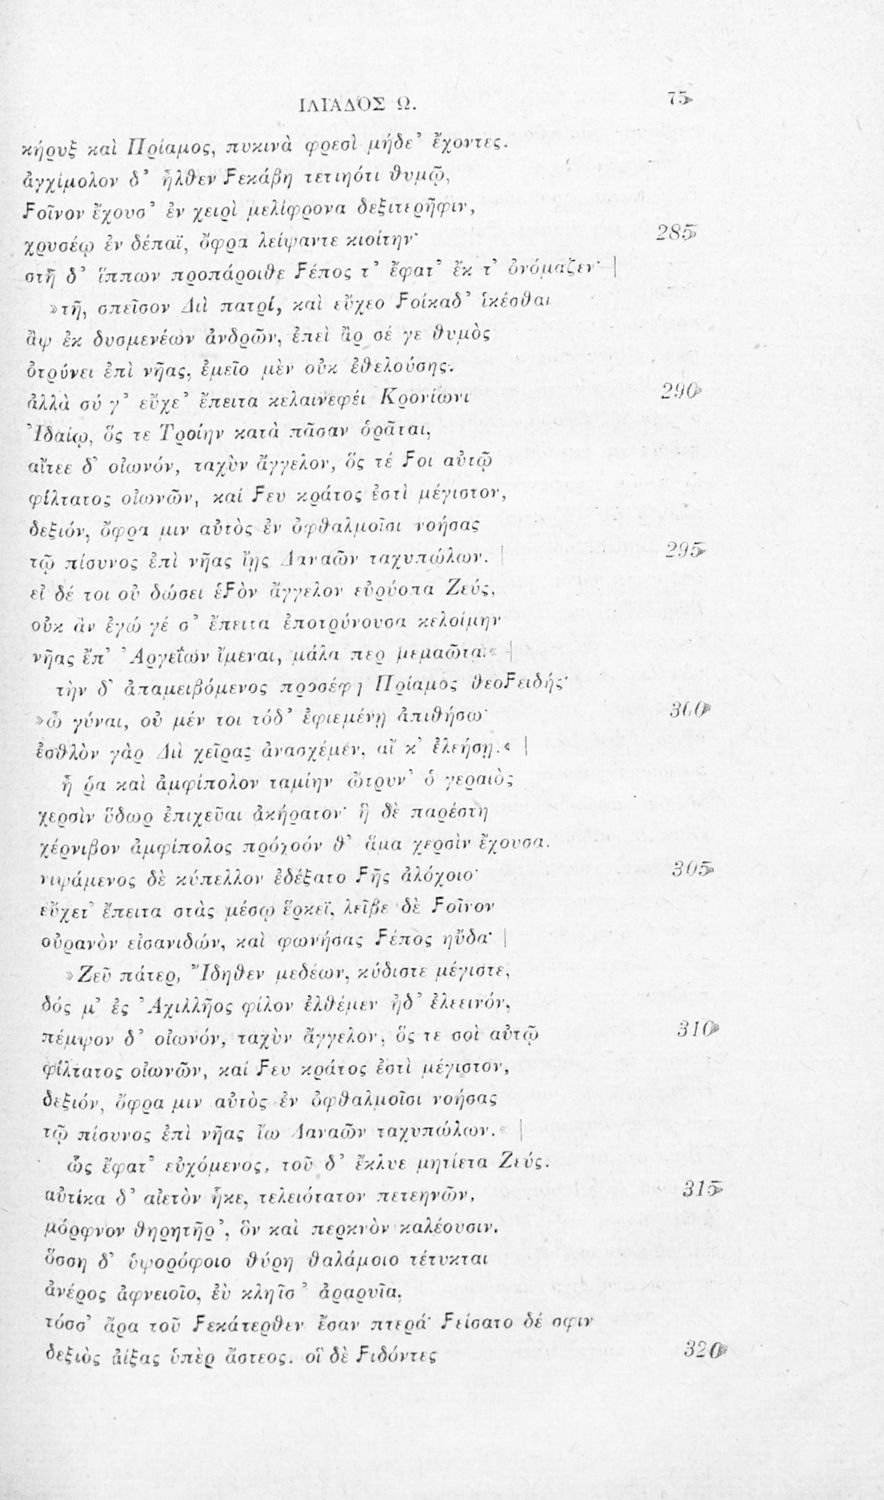 ΙΛΙΑΔΟΣ Ω. 75
κήρυξ καὶ Πρίαμος, πυκινὰ φρεσὶ μήδε’ ἔχοντες.
ἀγχίμολον δ’ ἦλθεν Ϝεκάβη τετιηότι θυμῷ,
Ϝοῖνον ἔχουσ’ ἐν χειρὶ μελίφρονα δεξιτερῆφιν,
χρυσέῳ ἐν δέπαϊ, ὄφρα λείψαντε κιοίτην· 285
στῆ δ’ ἵππων προπάροιθε Ϝέπος τ’ ἔφατ’ ἔκ τ’ ὀνόμαζεν· |
»τῆ, σπεῖσον Διὶ πατρί, καὶ εὔχεο Ϝοίκαδ’ ἱκέσθαι
ἂψ ἐκ δυσμενέων ἀνδρῶν, ἐπεὶ ἂρ σέ γε θυμὸς
ὀτρύνει ἐπὶ νῆας, ἐμεῖο μὲν οὐκ ἐθελούσης.
ἀλλὰ σύ γ’ εὔχε’ ἔπειτα κελαινεφέι Κρονίωνι 290
Ἰδαίῳ, ὅς τε Τροίην κατὰ πᾶσαν ὁρᾶται,
αἴτεε δ’ οἰωνόν, ταχὺν ἄγγελον, ὅς τέ Ϝοι αὐτῷ
φίλτατος οἰωνῶν, καί Ϝευ κράτος ἐστὶ μέγιστον,
δεξιόν, ὄφρα μιν αὐτὸς ἐν ὀφθαλμοῖσι νοήσας
τῷ πίσυνος ἐπὶ νῆας ἴῃς Δαναῶν ταχυπώλων. | 295
εἰ δέ τοι οὐ δώσει ἑϜὸν ἄγγελον εὐρύοπα Ζεύς,
οὐκ ἂν ἐγώ γέ σ’ ἔπειτα ἐποτρύνουσα κελοίμην
νῆας ἔπ’ Ἀργεΐων ἴμεναι, μάλα περ μεμαῶτα.« |
τὴν δ’ ἀπαμειβόμενος προσέφη Πρίαμος θεοϜειδής·
»ὦ γύναι, οὐ μέν τοι τόδ’ ἐφιεμένῃ ἀπιθήσω· 300
ἐσθλὸν γὰρ Διὶ χεῖρας ἀνασχέμεν, αἴ κ’ ἐλεήσῃ.« |
ἦ ῥα καὶ ἀμφίπολον ταμίην ὤτρυν’ ὁ γεραιὸς
χερσὶν ὕδωρ ἐπιχεῦαι ἀκήρατον· ἣ δὲ παρέστη
χέρνιβον ἀμφίπολος πρόχοόν θ’ ἅμα χερσὶν ἔχουσα.
νιψάμενος δὲ κύπελλον ἐδέξατο Ϝῆς ἀλόχοιο· 305
εὔχετ’ ἔπειτα στὰς μέσῳ ἕρκεϊ, λεῖβε δὲ Ϝοῖνον
οὐρανὸν εἰσανιδών, καὶ φωνήσας Ϝέπος ηὔδα· |
»Ζεῦ πάτερ, Ἴδηθεν μεδέων, κύδιστε μέγιστε,
δός μ’ ἐς Ἀχιλλῆος φίλον ἐλθέμεν ἠδ’ ἐλεεινόν,
πέμψον δ’ οἰωνόν, ταχὺν ἄγγελον, ὅς τε σοὶ αὐτῷ 310
φίλτατος οἰωνῶν, καί Ϝευ κράτος ἐστὶ μέγιστον,
δεξιόν, ὄφρα μιν αὐτὸς ἐν ὀφθαλμοῖσι νοήσας
τῷ πίσυνος ἐπὶ νῆας ἴω Δαναῶν ταχυπώλων.« |
ὣς ἔφατ’ εὐχόμενος, τοῦ δ’ ἔκλυε μητίετα Ζεύς.
αὐτίκα δ’ αἰετὸν ἧκε, τελειότατον πετεηνῶν, 315
μόρφνον θηρητῆρ’, ὃν καὶ περκνὸν καλέουσιν.
ὅσση δ’ ὑψορόφοιο θύρη θαλάμοιο τέτυκται
ἀνέρος ἀφνειοῖο, ἐὺ κληῖσ’ ἀραρυῖα,
τόσσ’ ἄρα τοῦ Ϝεκάτερθεν ἔσαν πτερά· Ϝείσατο δέ σφιν
δεξιὸς ἀίξας ὑπὲρ ἄστεος. οἳ δὲ Ϝιδόντες 320